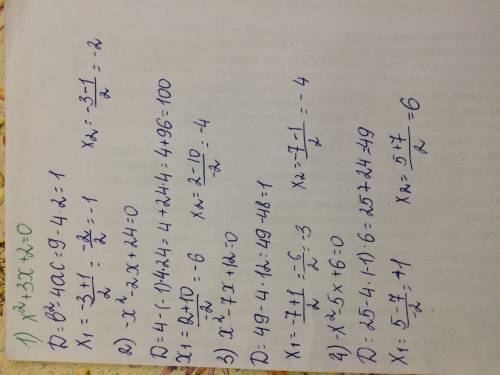 1) x²+3x+2=0
D=b²-4ac=9-4·2=1
x₁=(-3+1)/2=-2/2=-1   x₂=(-3-1)/2=-2
2) -x²-2x+24=0
D=4-(-1)·4·24=4+24·4=4+96=100
x₁=(2+10)/-2=-6   x₂=(2-10)/-2=-4
3) x²-7x+12=0
D=49-4·12=49-48=1
x₁=(-7+1)/2=-6/2=-3   x₂=(-7-1)/2=-4
4) -x²-5x+6=0
D=25-4·(-1)·6=25+24=49
x₁=(5-7)/-2=+1   x₂=(5+7)/2=6